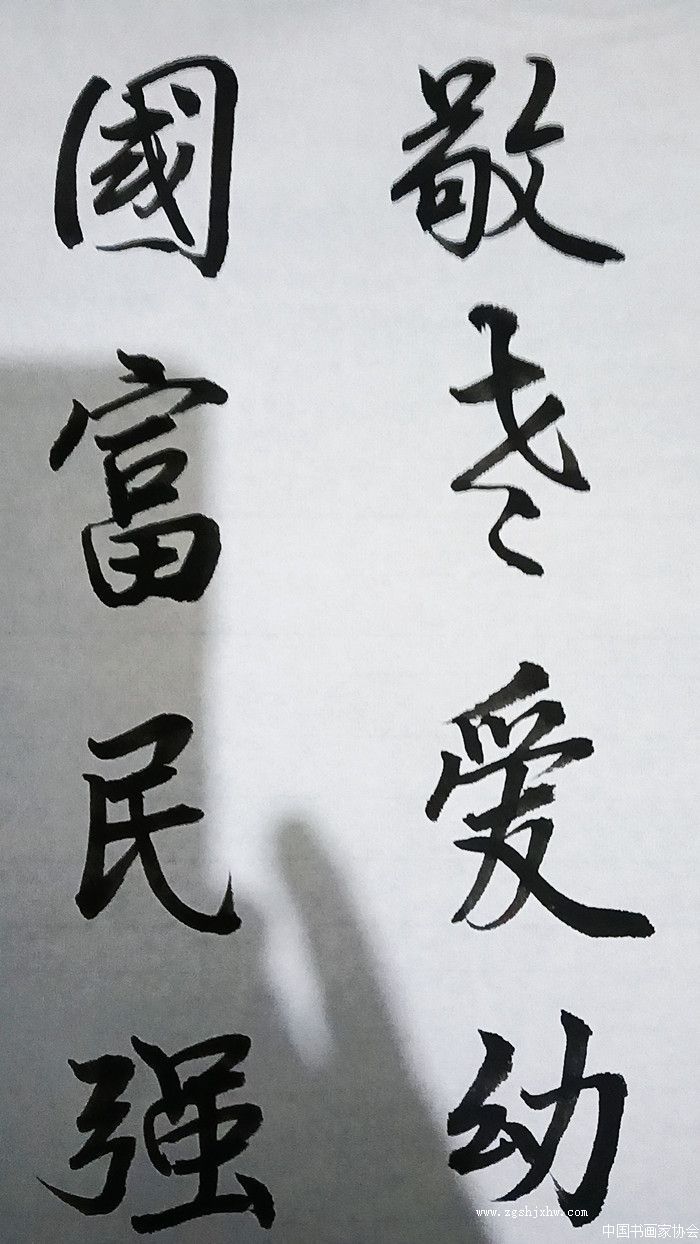 敬老爱幼
國富民强
www.zgshjxhw.com
中国书画家协会